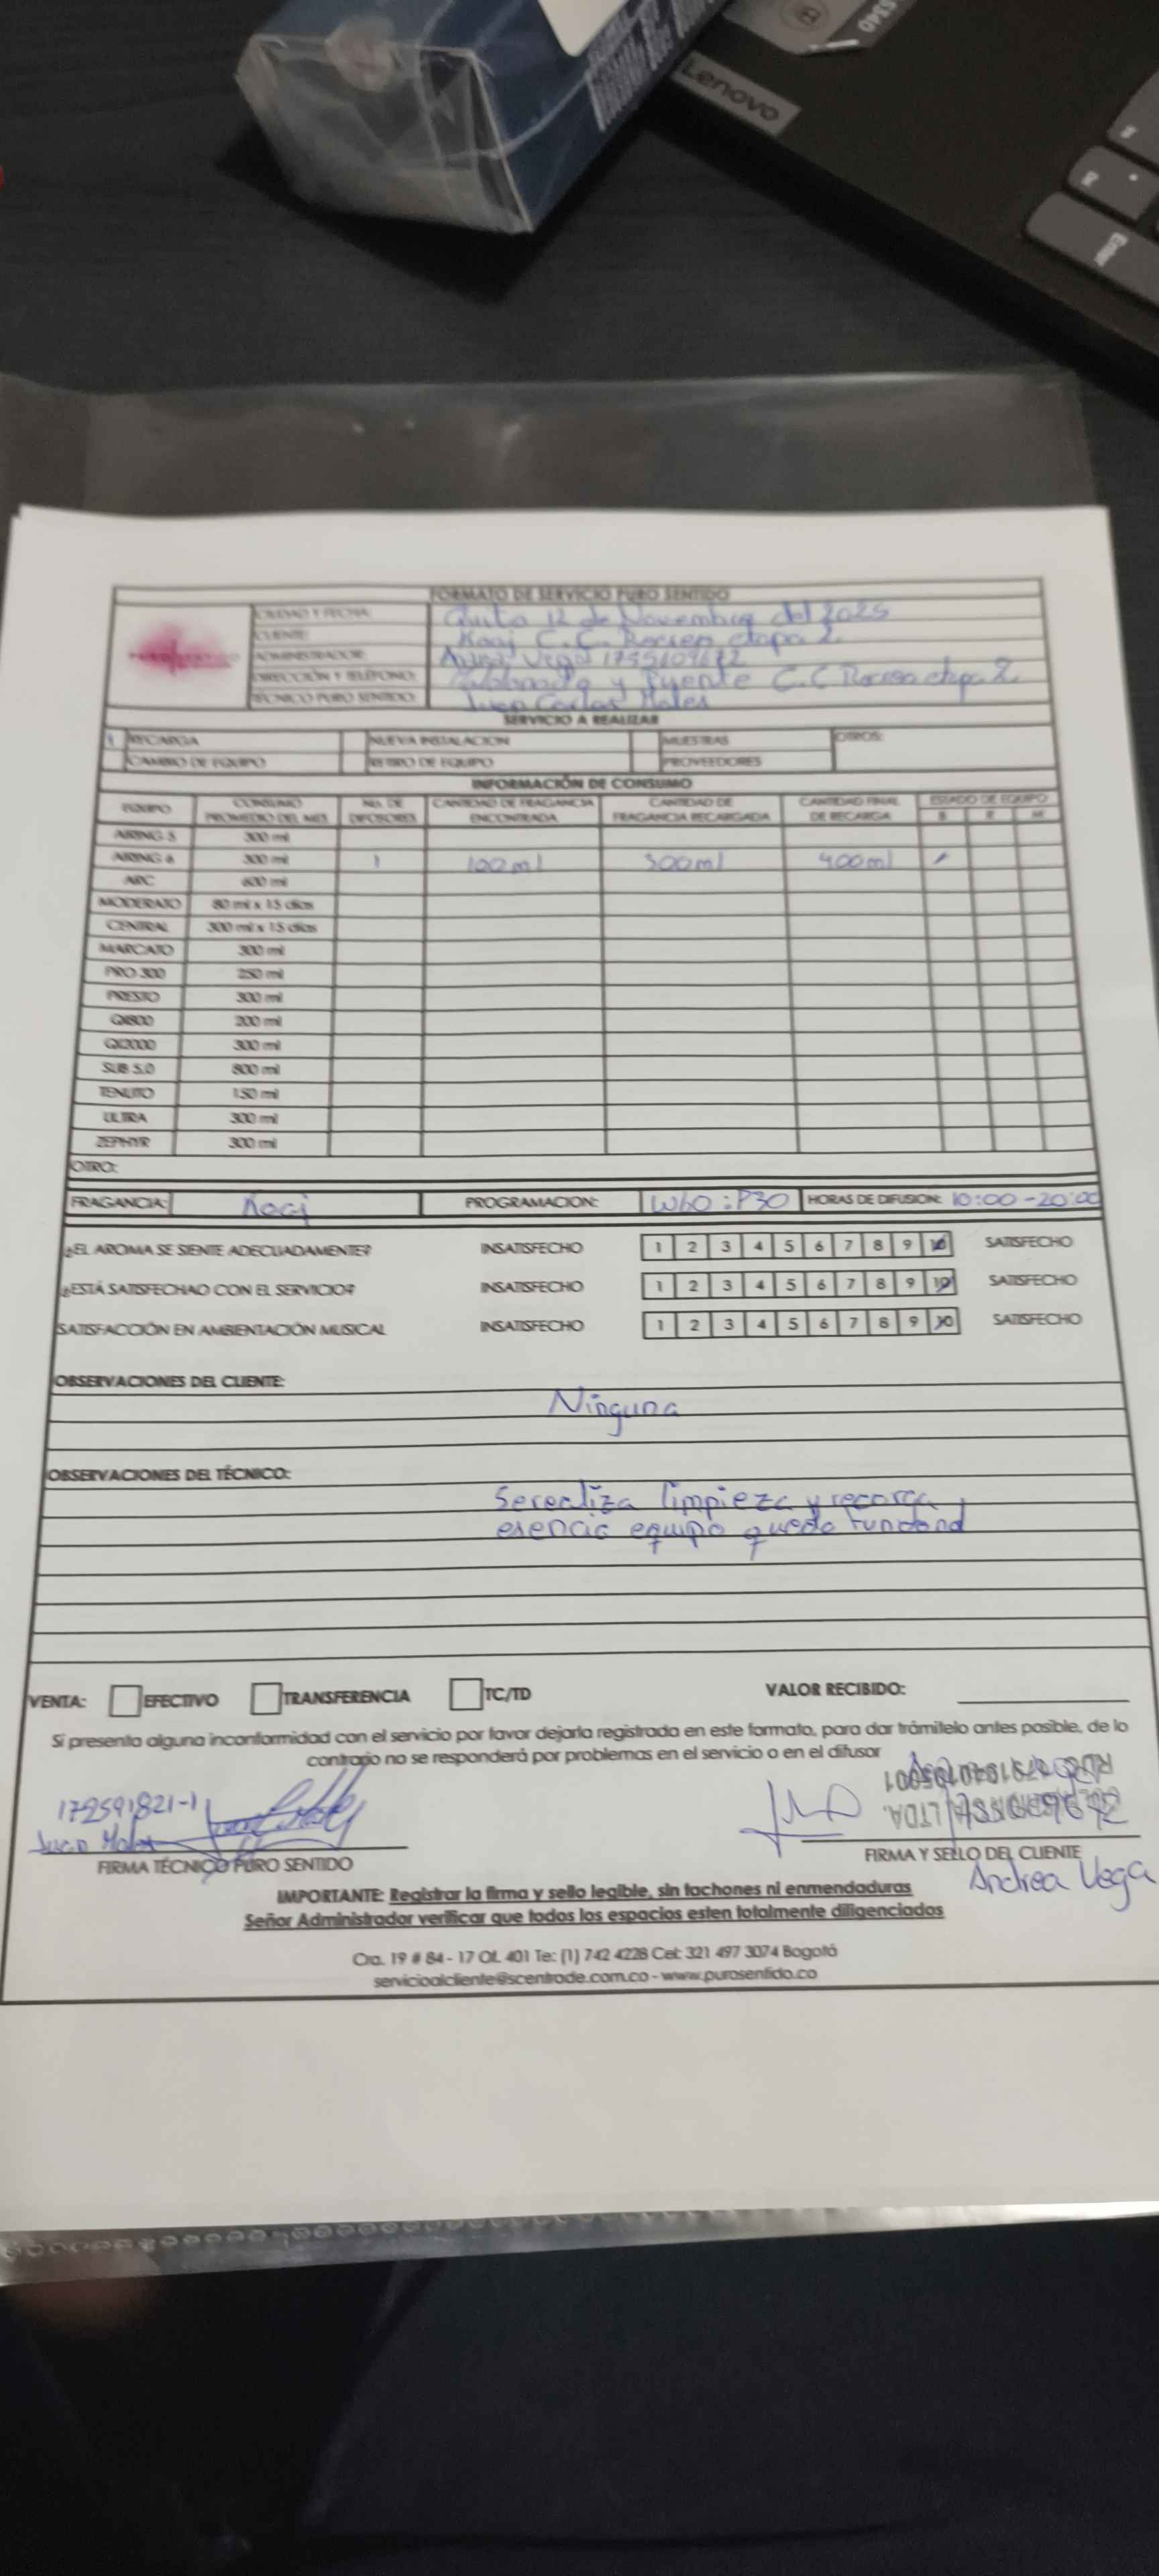 Lenovo
Enter
FORMATO DE SERVICIO PURO SENTIDO
CIUDAD Y FECHA: Quito 12 de Noviembre del 2025
CLIENTE: Koaj C.C. Recreo etapa 2
ADMINISTRADOR: Vega
DIRECCIÓN Y TELÉFONO: y Puente C.C Recreo etapa 2
TÉCNICO PURO SENTIDO: Juan Carlos Males
SERVICIO A REALIZAR
RECARGA NUEVA INSTALACION MUESTRAS OTROS:
CAMBIO DE EQUIPO RETIRO DE EQUIPO PROVEEDORES
INFORMACIÓN DE CONSUMO
EQUIPO CONSUMO PROMEDIO DEL MES No. DE DIFUSORES CANTIDAD DE FRAGANCIA ENCONTRADA CANTIDAD DE FRAGANCIA RECARGADA CANTIDAD FINAL DE RECARGA ESTADO DE EQUIPO
B R M
AIRING 5 300 ml
AIRING 6 300 ml 1 100ml 300ml 400ml
ARC 600 ml
MODERATO 80 ml x 15 días
CENTRAL 300 ml x 15 días
MARCATO 300 ml
PRO 300 250 ml
PRESTO 300 ml
QI800 200 ml
QI2000 300 ml
SUB 5.0 800 ml
TENUTO 150 ml
ULTRA 300 ml
ZEPHYR 300 ml
OTRO:
FRAGANCIA: Koaj PROGRAMACION: W60:P30 HORAS DE DIFUSION: 10:00-20:00
¿EL AROMA SE SIENTE ADECUADAMENTE? INSATISFECHO 1 2 3 4 5 6 7 8 9 10 SATISFECHO
¿ESTÁ SATISFECHAO CON EL SERVICIO? INSATISFECHO 1 2 3 4 5 6 7 8 9 10 SATISFECHO
SATISFACCIÓN EN AMBIENTACIÓN MUSICAL INSATISFECHO 1 2 3 4 5 6 7 8 9 10 SATISFECHO
OBSERVACIONES DEL CLIENTE:
Ninguna
OBSERVACIONES DEL TÉCNICO:
Serealiza limpieza y recarga
esencia equipo quedo funcionand
VENTA: EFECTIVO TRANSFERENCIA TC/TD VALOR RECIBIDO:
Si presenta alguna inconformidad con el servicio por favor dejarla registrada en este formato, para dar trámitelo antes posible, de lo
contrario no se responderá por problemas en el servicio o en el difusor
172591821-1
Juan Males
LTDA.
FIRMA TÉCNICO PURO SENTIDO FIRMA Y SELLO DEL CLIENTE
Andrea Vega
IMPORTANTE: Registrar la firma y sello legible, sin tachones ni enmendaduras
Señor Administrador verificar que todos los espacios esten totalmente diligenciados
Cra. 19 # 84 - 17 Of. 401 Te: (1) 742 4228 Cel: 321 497 3074 Bogotá
servicioalcliente@scentrade.com.co - www.purosentido.co